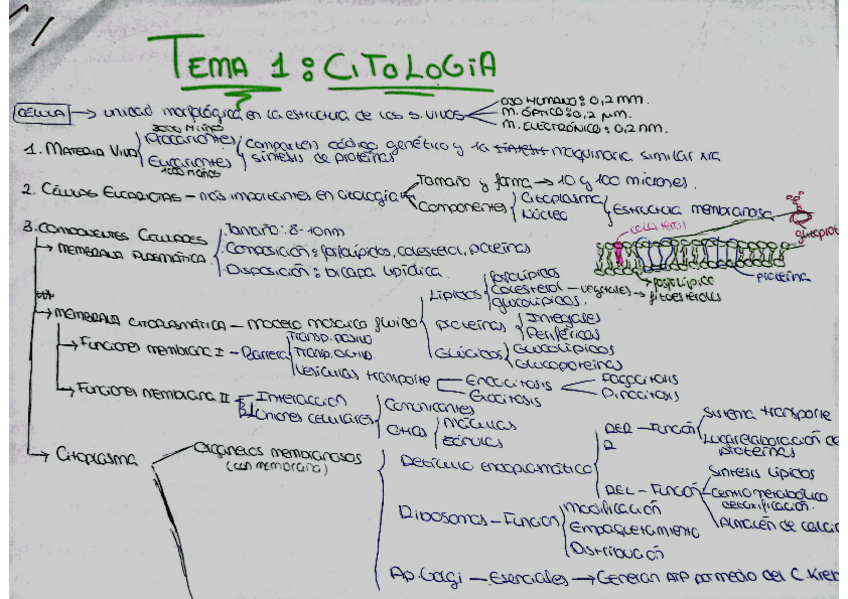 TEMA 1: CITOLOGIA
CÉLULA → unidad morfológica en la estructura de los s. vivos
OJO HUMANO: 0,2 mm.
M. ÓPTICO: 0,2 μm.
M. ELECTRÓNICO: 0,2 nm.
1. MATERIA VIVA
Procariontes
3000 M años
Eucariontes
1000 M años
comparten código genético y la síntesis maquinaria similar xra
síntesis de proteínas
2. CÉLULAS EUCARIOTAS – más importantes en citología
Tamaño y forma → 10 y 100 micrones.
Componentes
Citoplasma
Núcleo
Estructura membranosa
3. COMPONENTES CELULARES
→ MEMBRANA PLASMÁTICA
Tamaño: 8-10nm
Composición: fosfolípidos, colesterol, proteínas
Disposición: bicapa lipídica.
colesterol
glucoprot
fosfolípido
proteína
→ MEMBRANA CITOPLASMÁTICA – modelo mosaico fluido
Lípidos
Fosfolípidos
Colesterol – vegetales → fitoesteroles
glucolípidos.
proteínas
Integrales
Periféricas
Glúcidos
Glucolípidos
Glucoproteínas
→ Funciones membrana I – Barrera
Transp. pasivo
Transp. activo
Vesículas transporte
Endocitosis
Exocitosis
Fagocitosis
Pinocitosis
→ Funciones membrana II
Interacción
Uniones celulares
Comunicantes
Otras
Máculas
Zónulas
→ Citoplasma
Orgánelos membranosos
(con membrana)
Retículo endoplasmático
RER – Función
2
Sistema transporte
Lugar elaboración de
proteínas
REL – Función
Síntesis lípidos
Centro metabólico
detoxificación.
Almacén de calcio
Ribosomas – Función
modificación
Empaquetamiento
Distribución
Ap. Golgi – Esenciales → Generan ATP por medio del C. Kreb